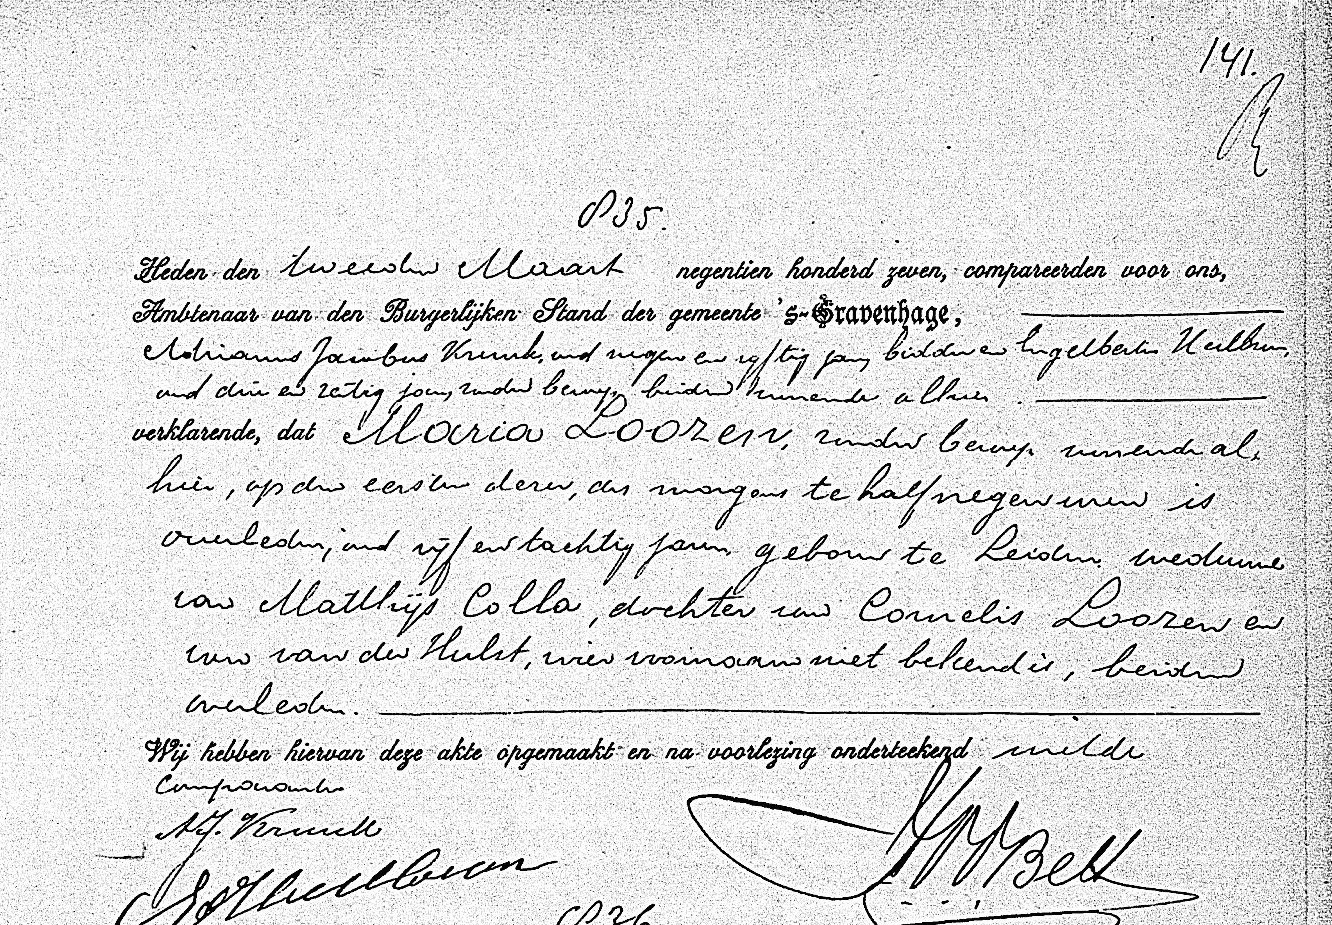 141.
835.
Heden den tweeden Maart negentien honderd zeven, compareerden voor ons,
Ambtenaar van den Burgerlijken Stand der gemeente 's-Gravenhage,
Adrianus Jacobus Krunk, oud negen en vijftig jaar, bidder en Engelbertus Heilbron,
oud drie en zestig jaar, zonder beroep, beiden wonende alhier.
verklarende, dat Maria Loozen, zonder beroep, wonende al,
hier, op den eersten dezer, des morgens te half negen uren is
overleden, oud vijf en tachtig jaren, geboren te Leiden, weduwe
van Matthijs Colla, dochter van Cornelis Loozen en
van van der Hulst, wier voornaam niet bekend is, beiden
overleden.
Wij hebben hiervan deze akte opgemaakt en na voorlezing onderteekend met de
Comparanten
A.J.
Bell
836